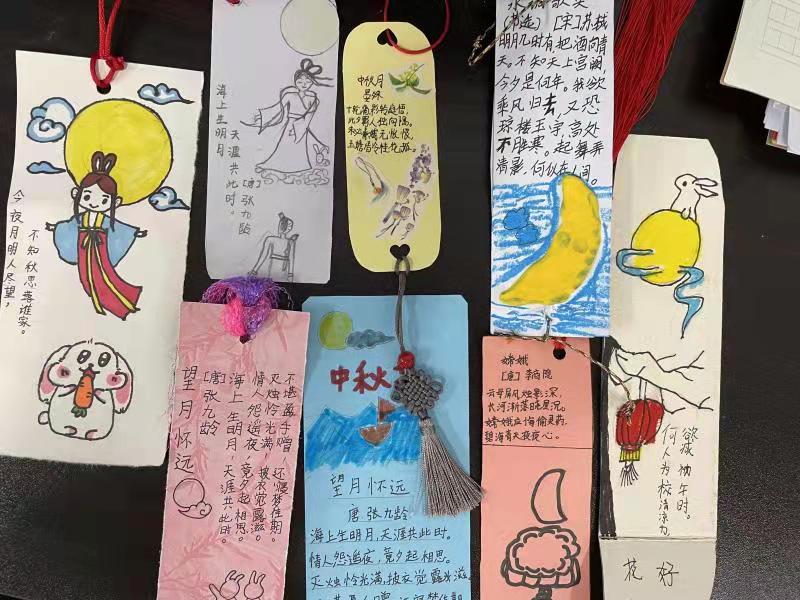 今夜月明人尽望，
不知秋思落谁家。
海上生明月
天涯共此时。
[唐]张九龄
中秋月
晏殊
十轮霜影转庭梧，
此夕羁人独向隅。
未必素娥无怅恨，
玉蟾清冷桂花孤。
[宋]苏轼
明月几时有把酒问青
天。不知天上宫阙，
今夕是何年。我欲
乘风归去，又恐
琼楼玉宇，高处
不胜寒。起舞弄
清影，何似在人间。
望月怀远
[唐]张九龄
海上生明月，天涯共此时。
情人怨遥夜，竟夕起相思。
灭烛怜光满，披衣觉露滋。
不堪盈手赠，还寝梦佳期。
中秋
望月怀远
唐 张九龄
海上生明月，天涯共此时。
情人怨遥夜，竟夕起相思。
灭烛怜光满，披衣觉露滋。
嫦娥
[唐]李商隐
云母屏风烛影深，
长河渐落晓星沉。
嫦娥应悔偷灵药，
碧海青天夜夜心。
何人为校清凉力
花好